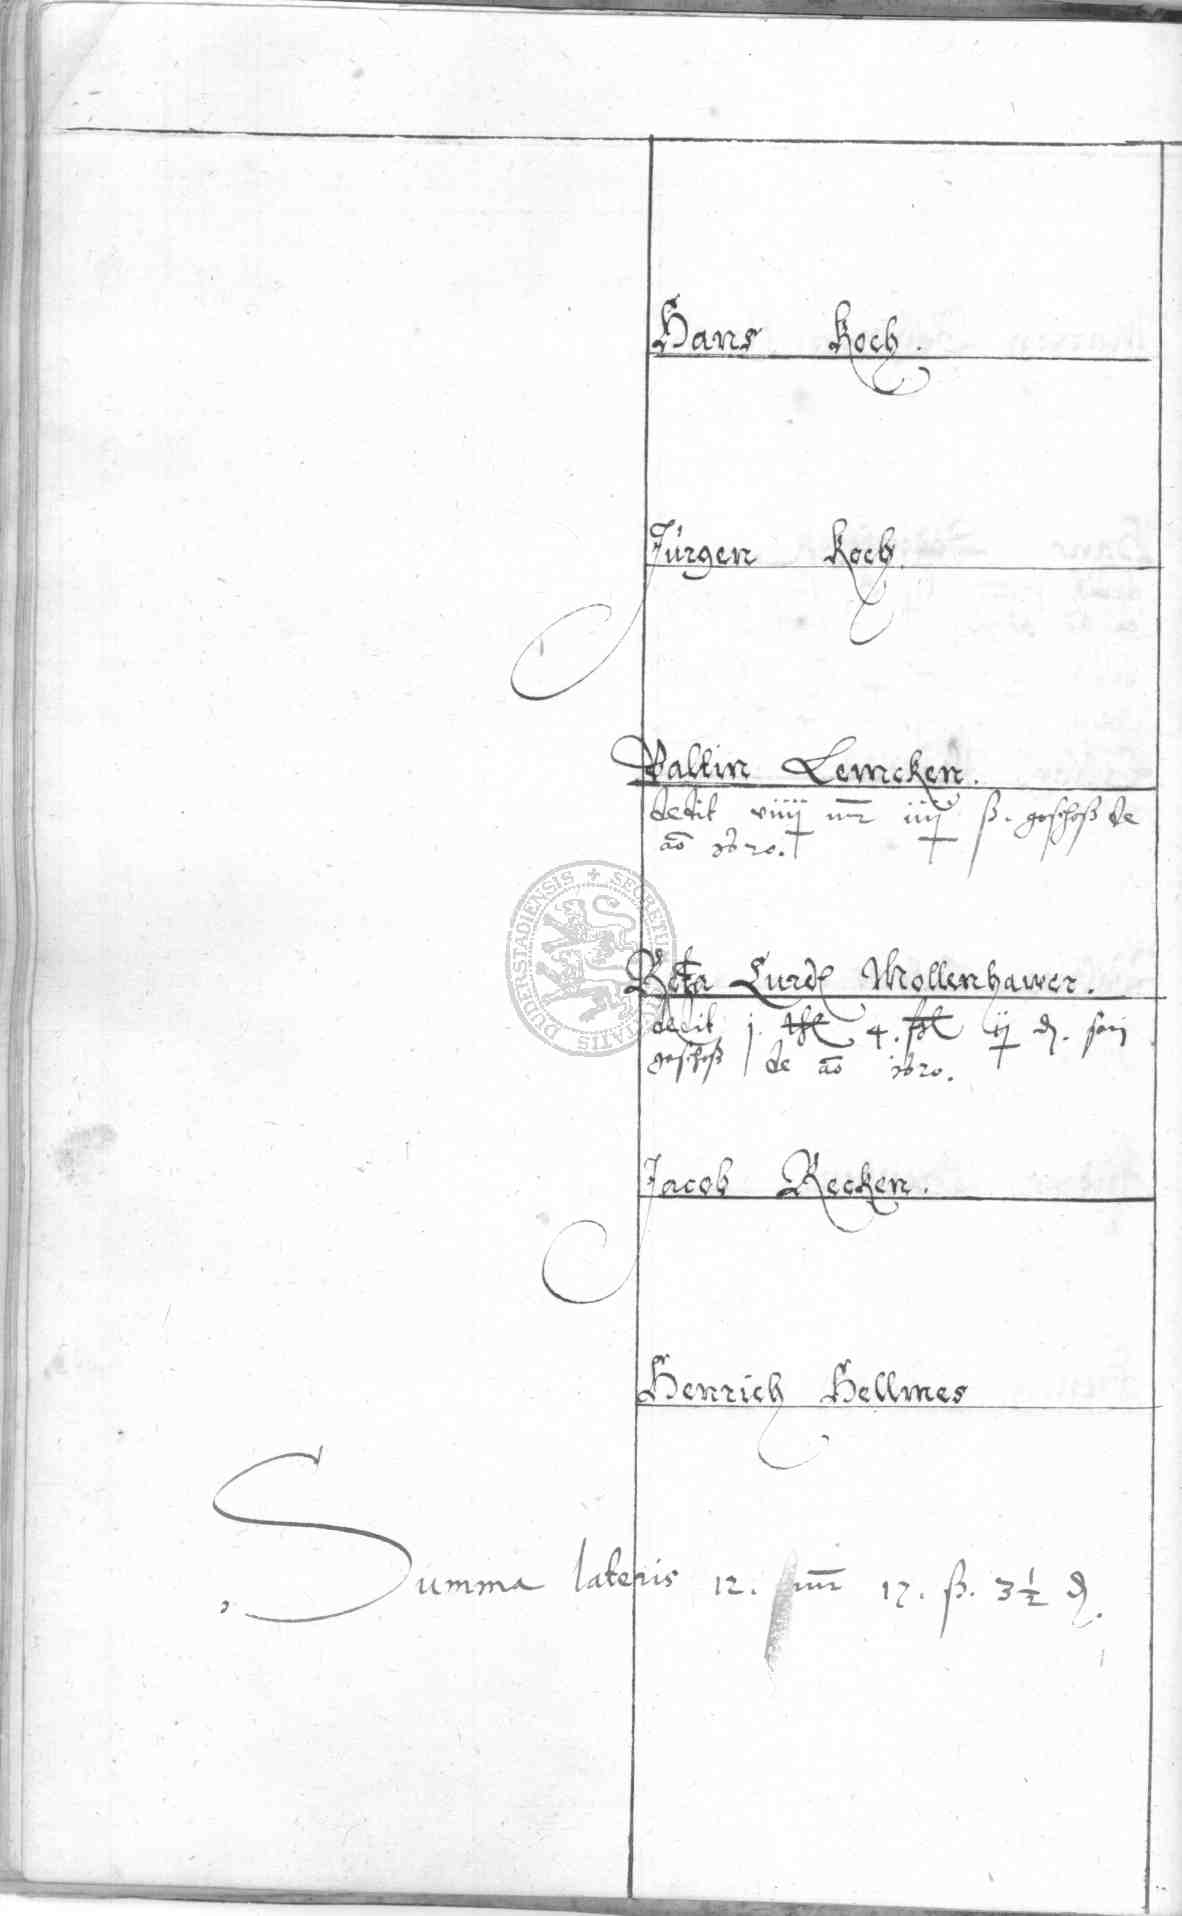 Hans Koch.
Jürgen Koch.
Valtin Lemcken.
dedit viiij mr iiij ß. geschoß de
ao 1620.
Relicta Curdt Mollenhawer.
dedit j. thl 4. ßl ij ₰.
geschoß de ao 1620.
Jacob Recken.
Henrich Hellmes
Summa lateris 12. mr 17. ß. 3½ ₰.
SECRETU CIVITATIS DUDERSTADIENSIS